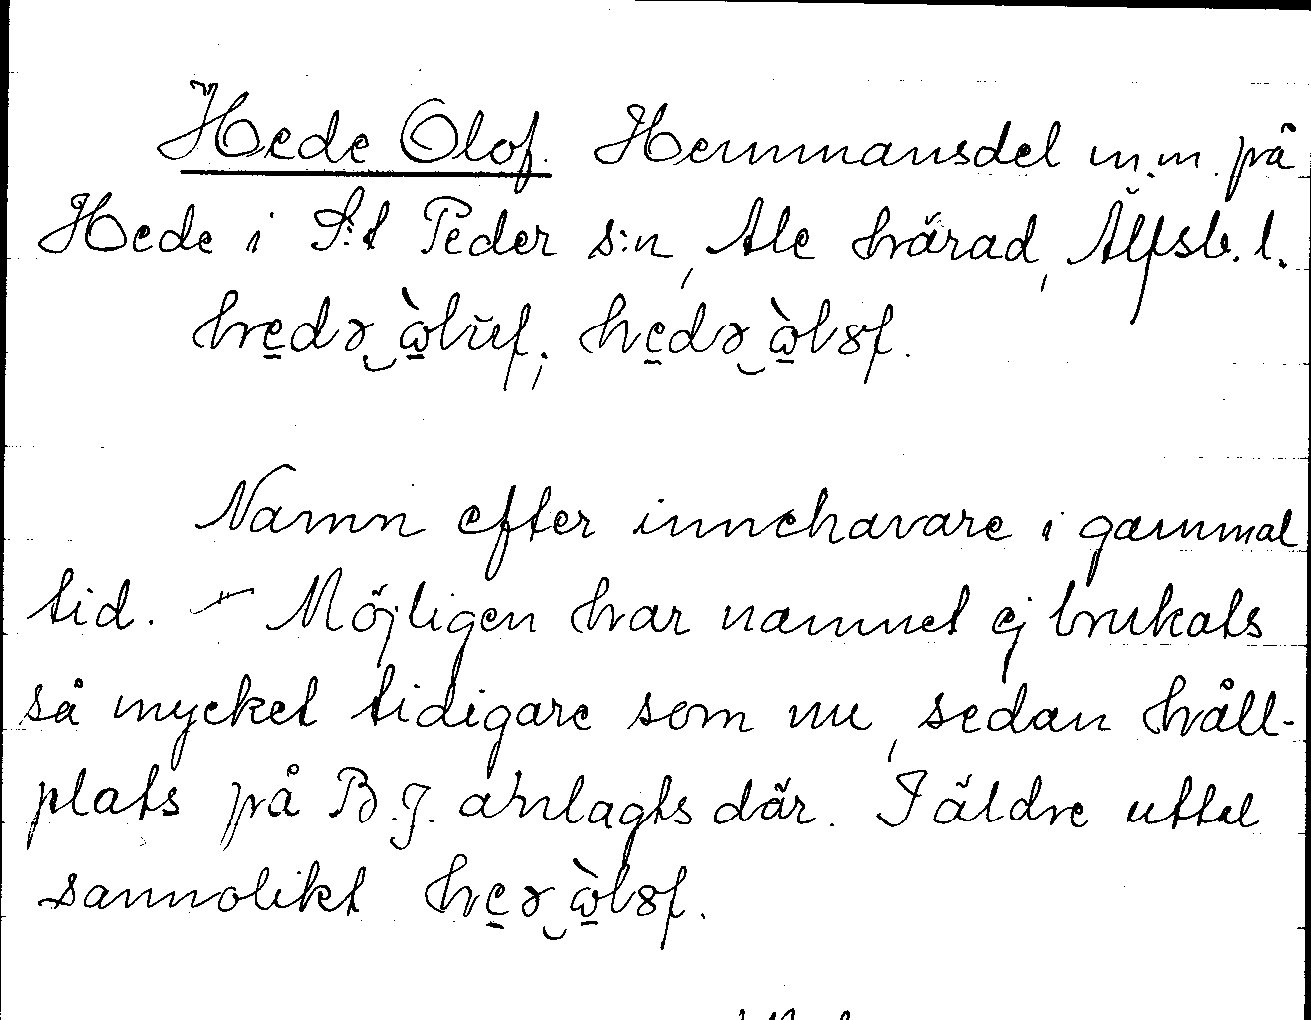 Hede Olof. Hemmansdel m.m. på
Hede i S:t Peder s:n, Ale härad, Älfsb. l.
hedə‿ὼlŭf; hedə‿ὼl8f.
Namn efter innehavare i gammal
tid. – Möjligen har namnet ej brukats
så mycket tidigare som nu, sedan håll-
plats på B.J. anlagts där. I äldre uttal
sannolikt heə‿ὼl8f.